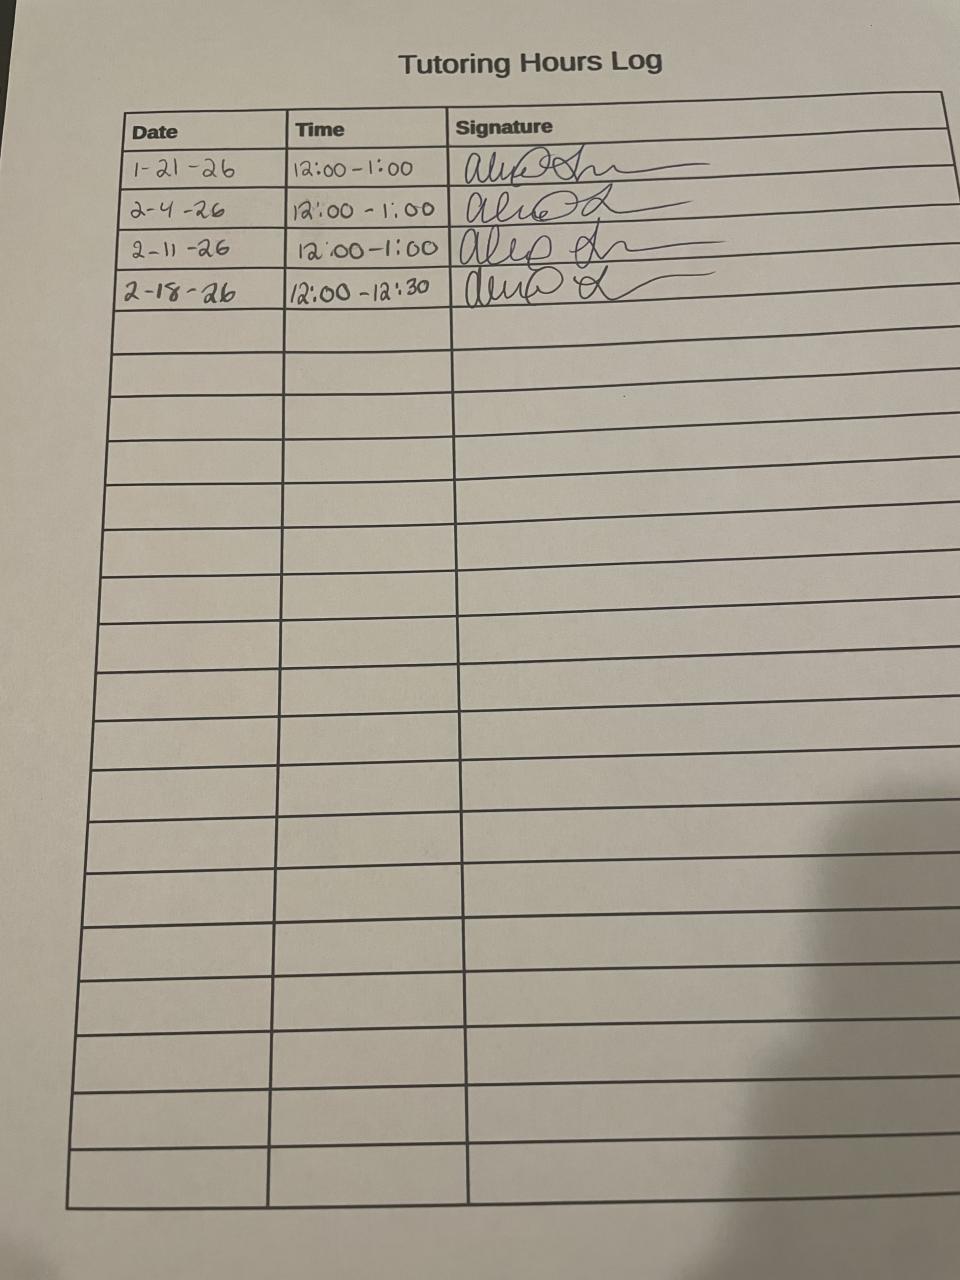 Tutoring Hours Log
Date Time Signature
1-21-26 12:00-1:00
2-4-26 12:00-1:00
2-11-26 12:00-1:00
2-18-26 12:00-12:30